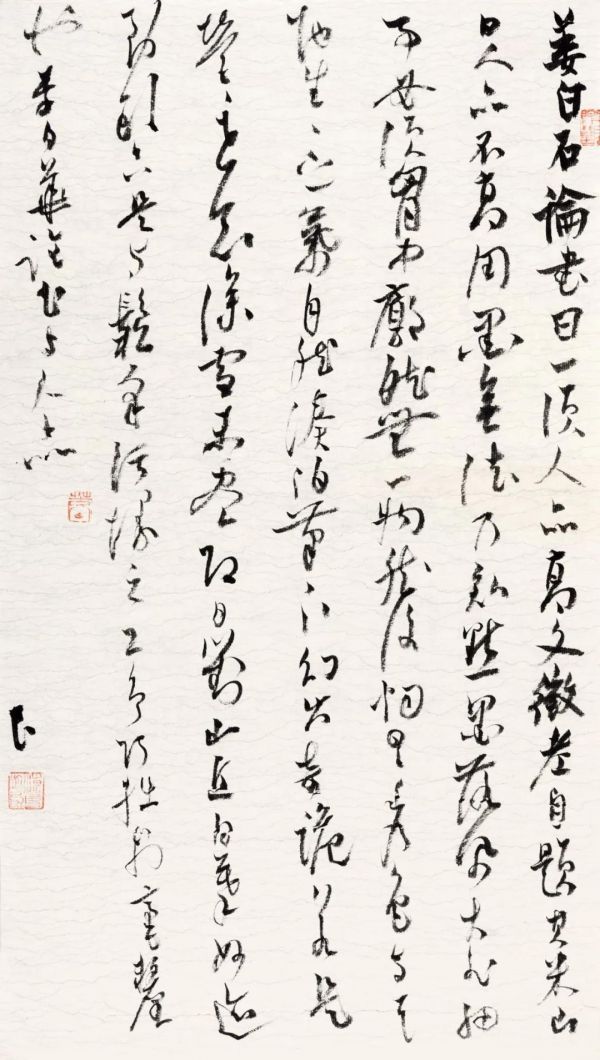 姜白石論書曰一須人品高文徵老自題其米山
曰人品不高用墨無法乃知點墨落紙大非細
事必須胸中廓然無一物然後烟雲秀色與天
地生生之氣自然湊泊筆下幻出奇詭若是
營營世念澡雪未盡即日對山丘日摹妙迹
到頭只是与髹采圬墁之工爭巧拙於毫釐
也李日華論書与人品